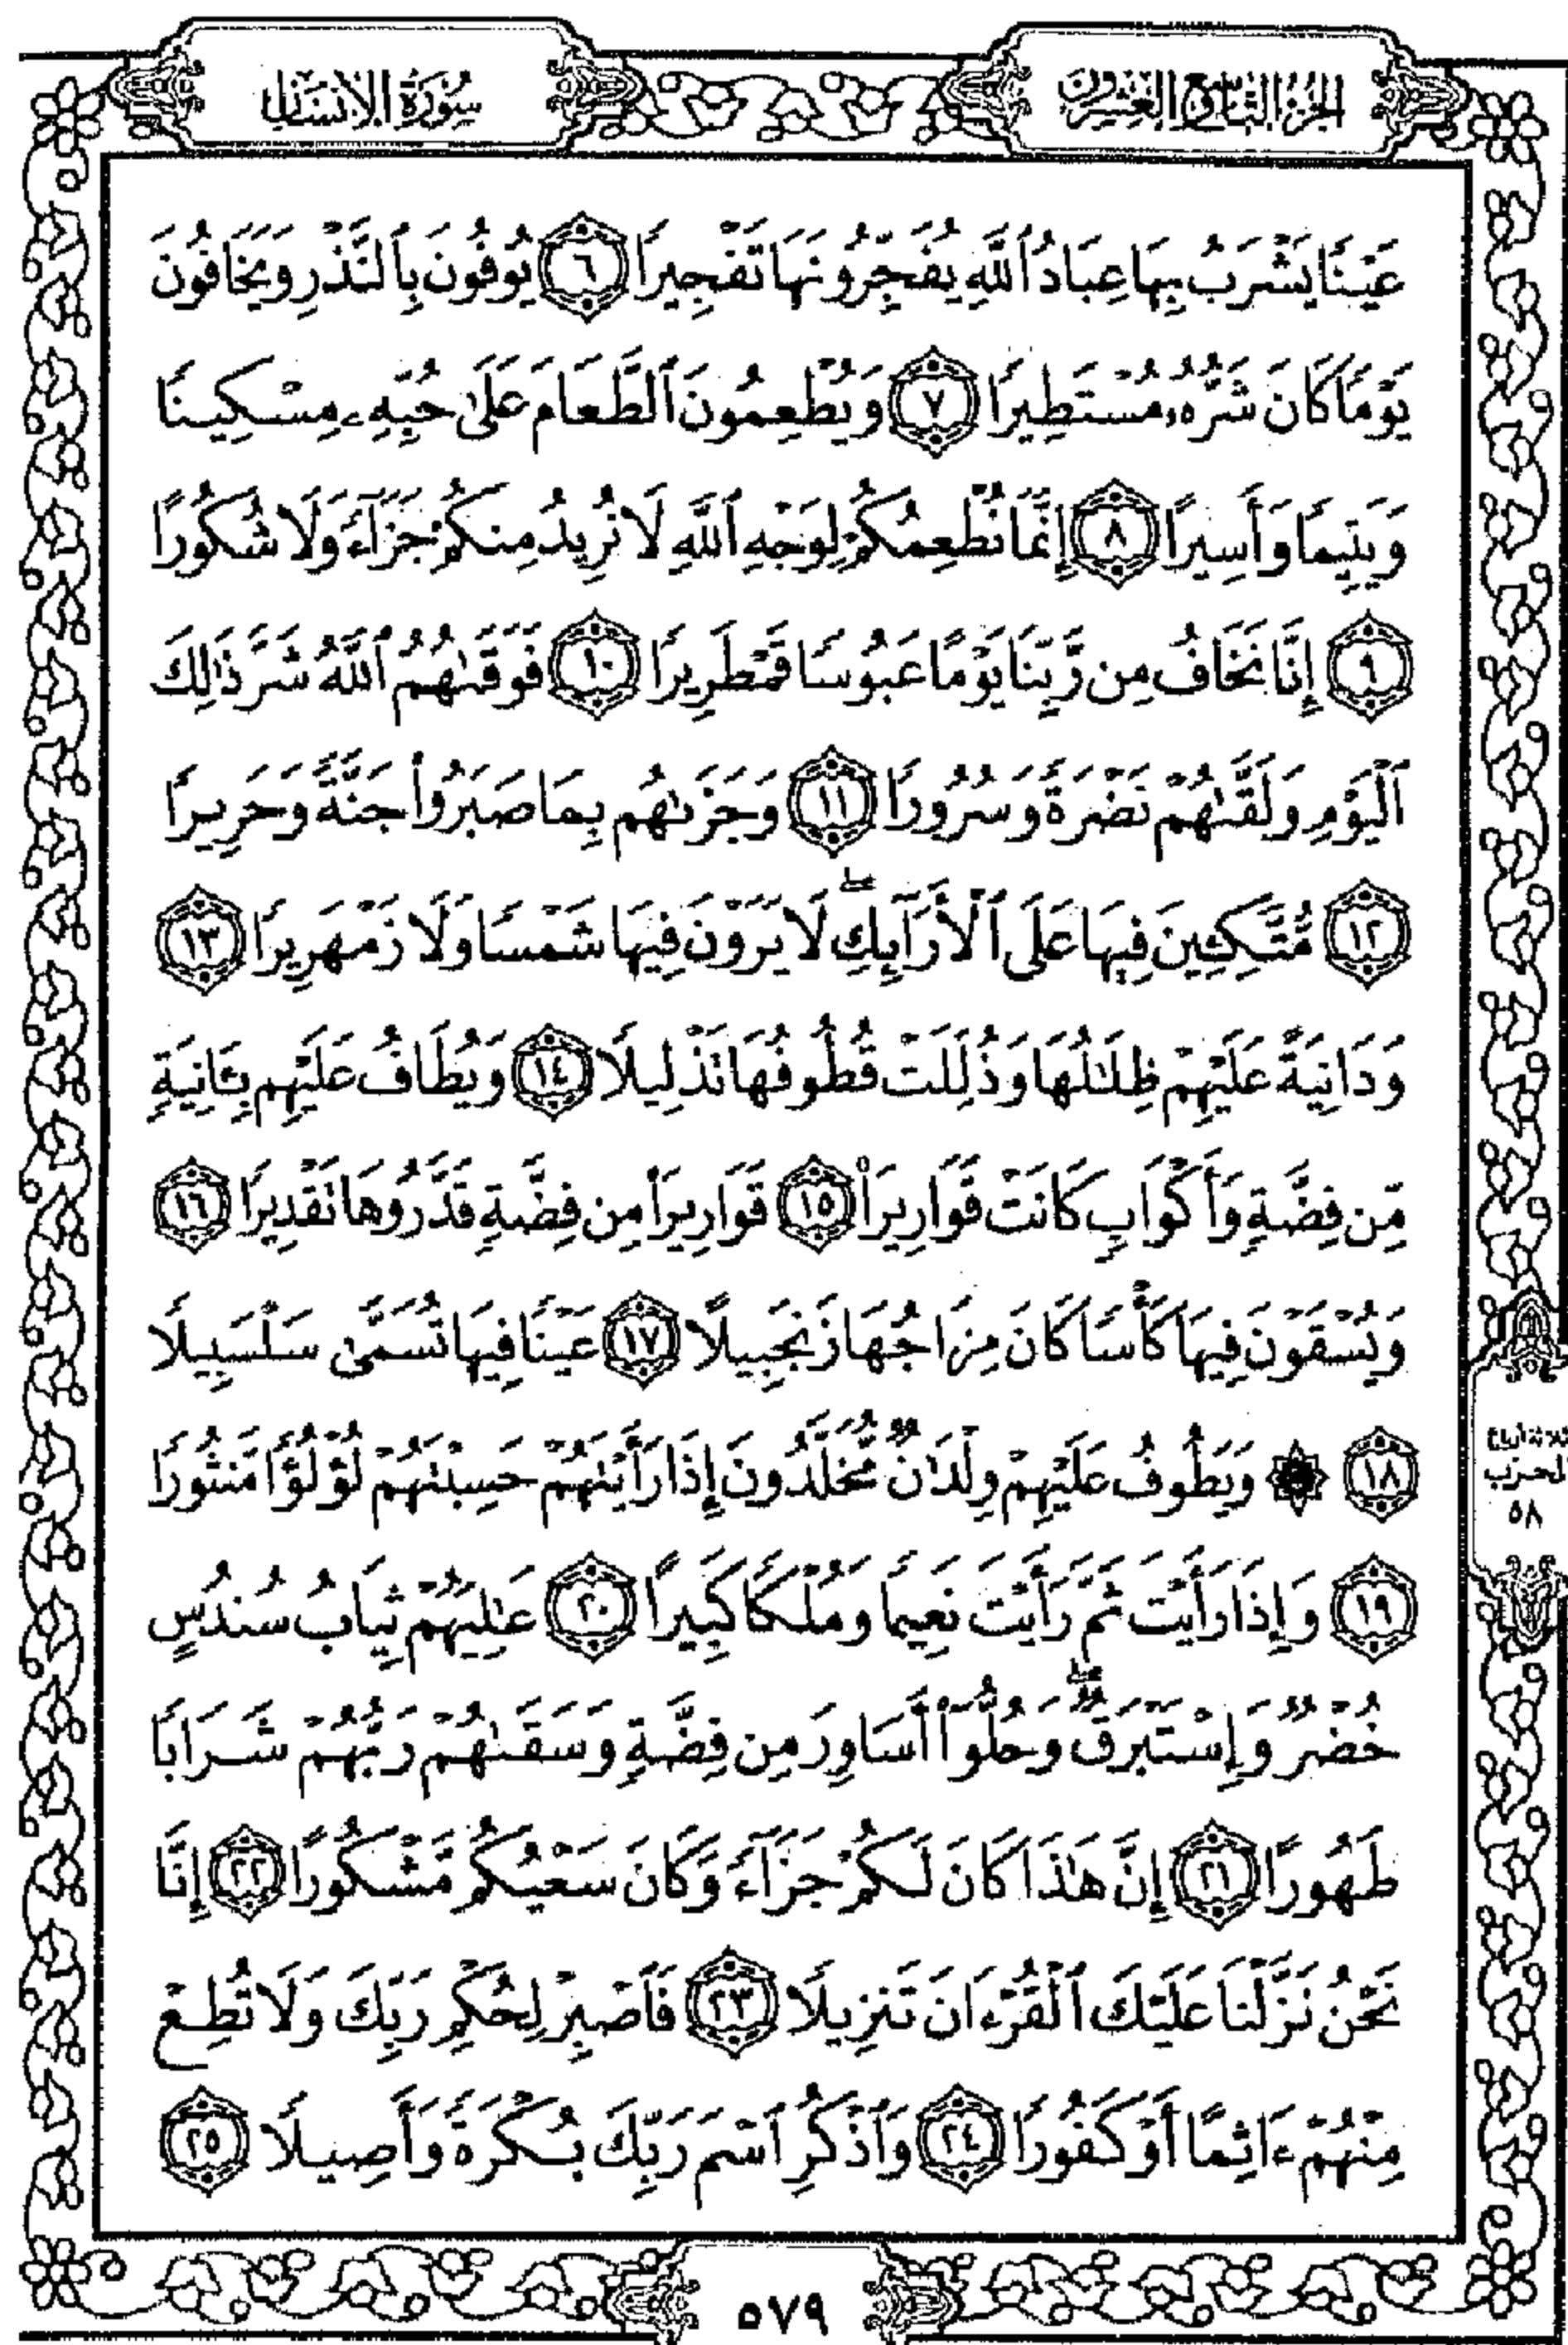 الجزء التاسع والعشرون
سورة الإنسان
عَيْنًا يَشْرَبُ بِهَا عِبَادُ ٱللَّهِ يُفَجِّرُونَهَا تَفْجِيرًا ٦ يُوفُونَ بِٱلنَّذْرِ وَيَخَافُونَ
يَوْمًا كَانَ شَرُّهُۥ مُسْتَطِيرًا ٧ وَيُطْعِمُونَ ٱلطَّعَامَ عَلَىٰ حُبِّهِۦ مِسْكِينًا
وَيَتِيمًا وَأَسِيرًا ٨ إِنَّمَا نُطْعِمُكُمْ لِوَجْهِ ٱللَّهِ لَا نُرِيدُ مِنكُمْ جَزَآءً وَلَا شُكُورًا
٩ إِنَّا نَخَافُ مِن رَّبِّنَا يَوْمًا عَبُوسًا قَمْطَرِيرًا ١٠ فَوَقَىٰهُمُ ٱللَّهُ شَرَّ ذَٰلِكَ
ٱلْيَوْمِ وَلَقَّىٰهُمْ نَضْرَةً وَسُرُورًا ١١ وَجَزَىٰهُم بِمَا صَبَرُوا۟ جَنَّةً وَحَرِيرًا
١٢ مُّتَّكِـِٔينَ فِيهَا عَلَى ٱلْأَرَآئِكِ ۖ لَا يَرَوْنَ فِيهَا شَمْسًا وَلَا زَمْهَرِيرًا ١٣
وَدَانِيَةً عَلَيْهِمْ ظِلَـٰلُهَا وَذُلِّلَتْ قُطُوفُهَا تَذْلِيلًا ١٤ وَيُطَافُ عَلَيْهِم بِـَٔانِيَةٍ
مِّن فِضَّةٍ وَأَكْوَابٍ كَانَتْ قَوَارِيرَا۠ ١٥ قَوَارِيرَا۟ مِن فِضَّةٍ قَدَّرُوهَا تَقْدِيرًا ١٦
وَيُسْقَوْنَ فِيهَا كَأْسًا كَانَ مِزَاجُهَا زَنجَبِيلًا ١٧ عَيْنًا فِيهَا تُسَمَّىٰ سَلْسَبِيلًا
١٨ ۞ وَيَطُوفُ عَلَيْهِمْ وِلْدَٰنٌ مُّخَلَّدُونَ إِذَا رَأَيْتَهُمْ حَسِبْتَهُمْ لُؤْلُؤًا مَّنثُورًا
ثلاثة أرباع
الحزب
٥٨
١٩ وَإِذَا رَأَيْتَ ثَمَّ رَأَيْتَ نَعِيمًا وَمُلْكًا كَبِيرًا ٢٠ عَـٰلِيَهُمْ ثِيَابُ سُندُسٍ
خُضْرٌ وَإِسْتَبْرَقٌ ۖ وَحُلُّوٓا۟ أَسَاوِرَ مِن فِضَّةٍ وَسَقَىٰهُمْ رَبُّهُمْ شَرَابًا
طَهُورًا ٢١ إِنَّ هَـٰذَا كَانَ لَكُمْ جَزَآءً وَكَانَ سَعْيُكُم مَّشْكُورًا ٢٢ إِنَّا
نَحْنُ نَزَّلْنَا عَلَيْكَ ٱلْقُرْءَانَ تَنزِيلًا ٢٣ فَٱصْبِرْ لِحُكْمِ رَبِّكَ وَلَا تُطِعْ
مِنْهُمْ ءَاثِمًا أَوْ كَفُورًا ٢٤ وَٱذْكُرِ ٱسْمَ رَبِّكَ بُكْرَةً وَأَصِيلًا ٢٥
٥٧٩